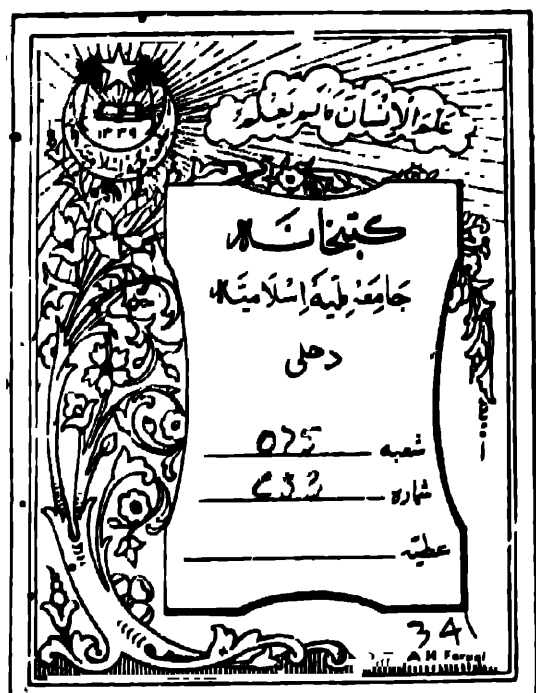 عَلَّمَ الْإِنْسَانَ مَا لَمْ يَعْلَمْ
۱۳۳۹
کتبخانہ
جَامِعَہ مِلِّیَہ اِسْلَامِیَہ
دهلی
شعبہ
شمارہ
عطیہ
34
A H Farugi